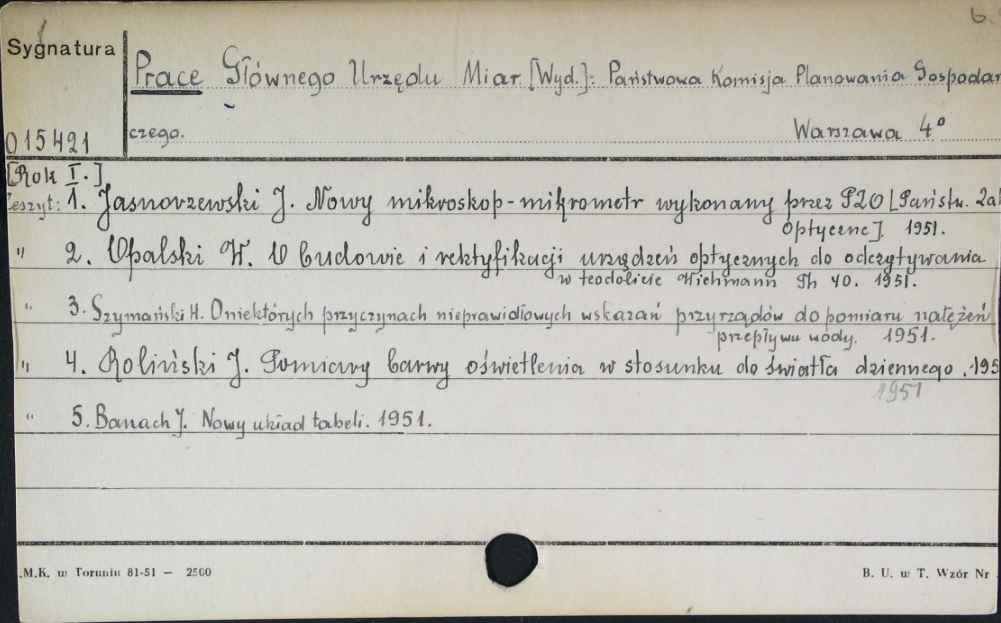 6
Sygnatura
Prace Głównego Urzędu Miar. [Wyd.]: Państwowa Komisja Planowania Gospodar
czego. Warszawa 4°
015421
[Rok I.]
Zeszyt: 1. Jasnorzewski J. Nowy mikroskop-mikrometr wykonany przez PZO [Państw. Zak
Optyczne]. 1951.
" 2. Opalski W. O budowie i rektyfikacji urządzeń optycznych do odczytywania
w teodolicie Wichmann Th 40. 1951.
" 3. Szymański H. O niektórych przyczynach nieprawidłowych wskazań przyrządów do pomiaru natężeń
przepływu wody. 1951.
" 4. Roliński J. Pomiary barwy oświetlenia w stosunku do światła dziennego. 195
1951
" 5. Banach J. Nowy układ tabeli. 1951.
.M.K. w Toruniu 81-51 — 2500
B. U. w T. Wzór Nr